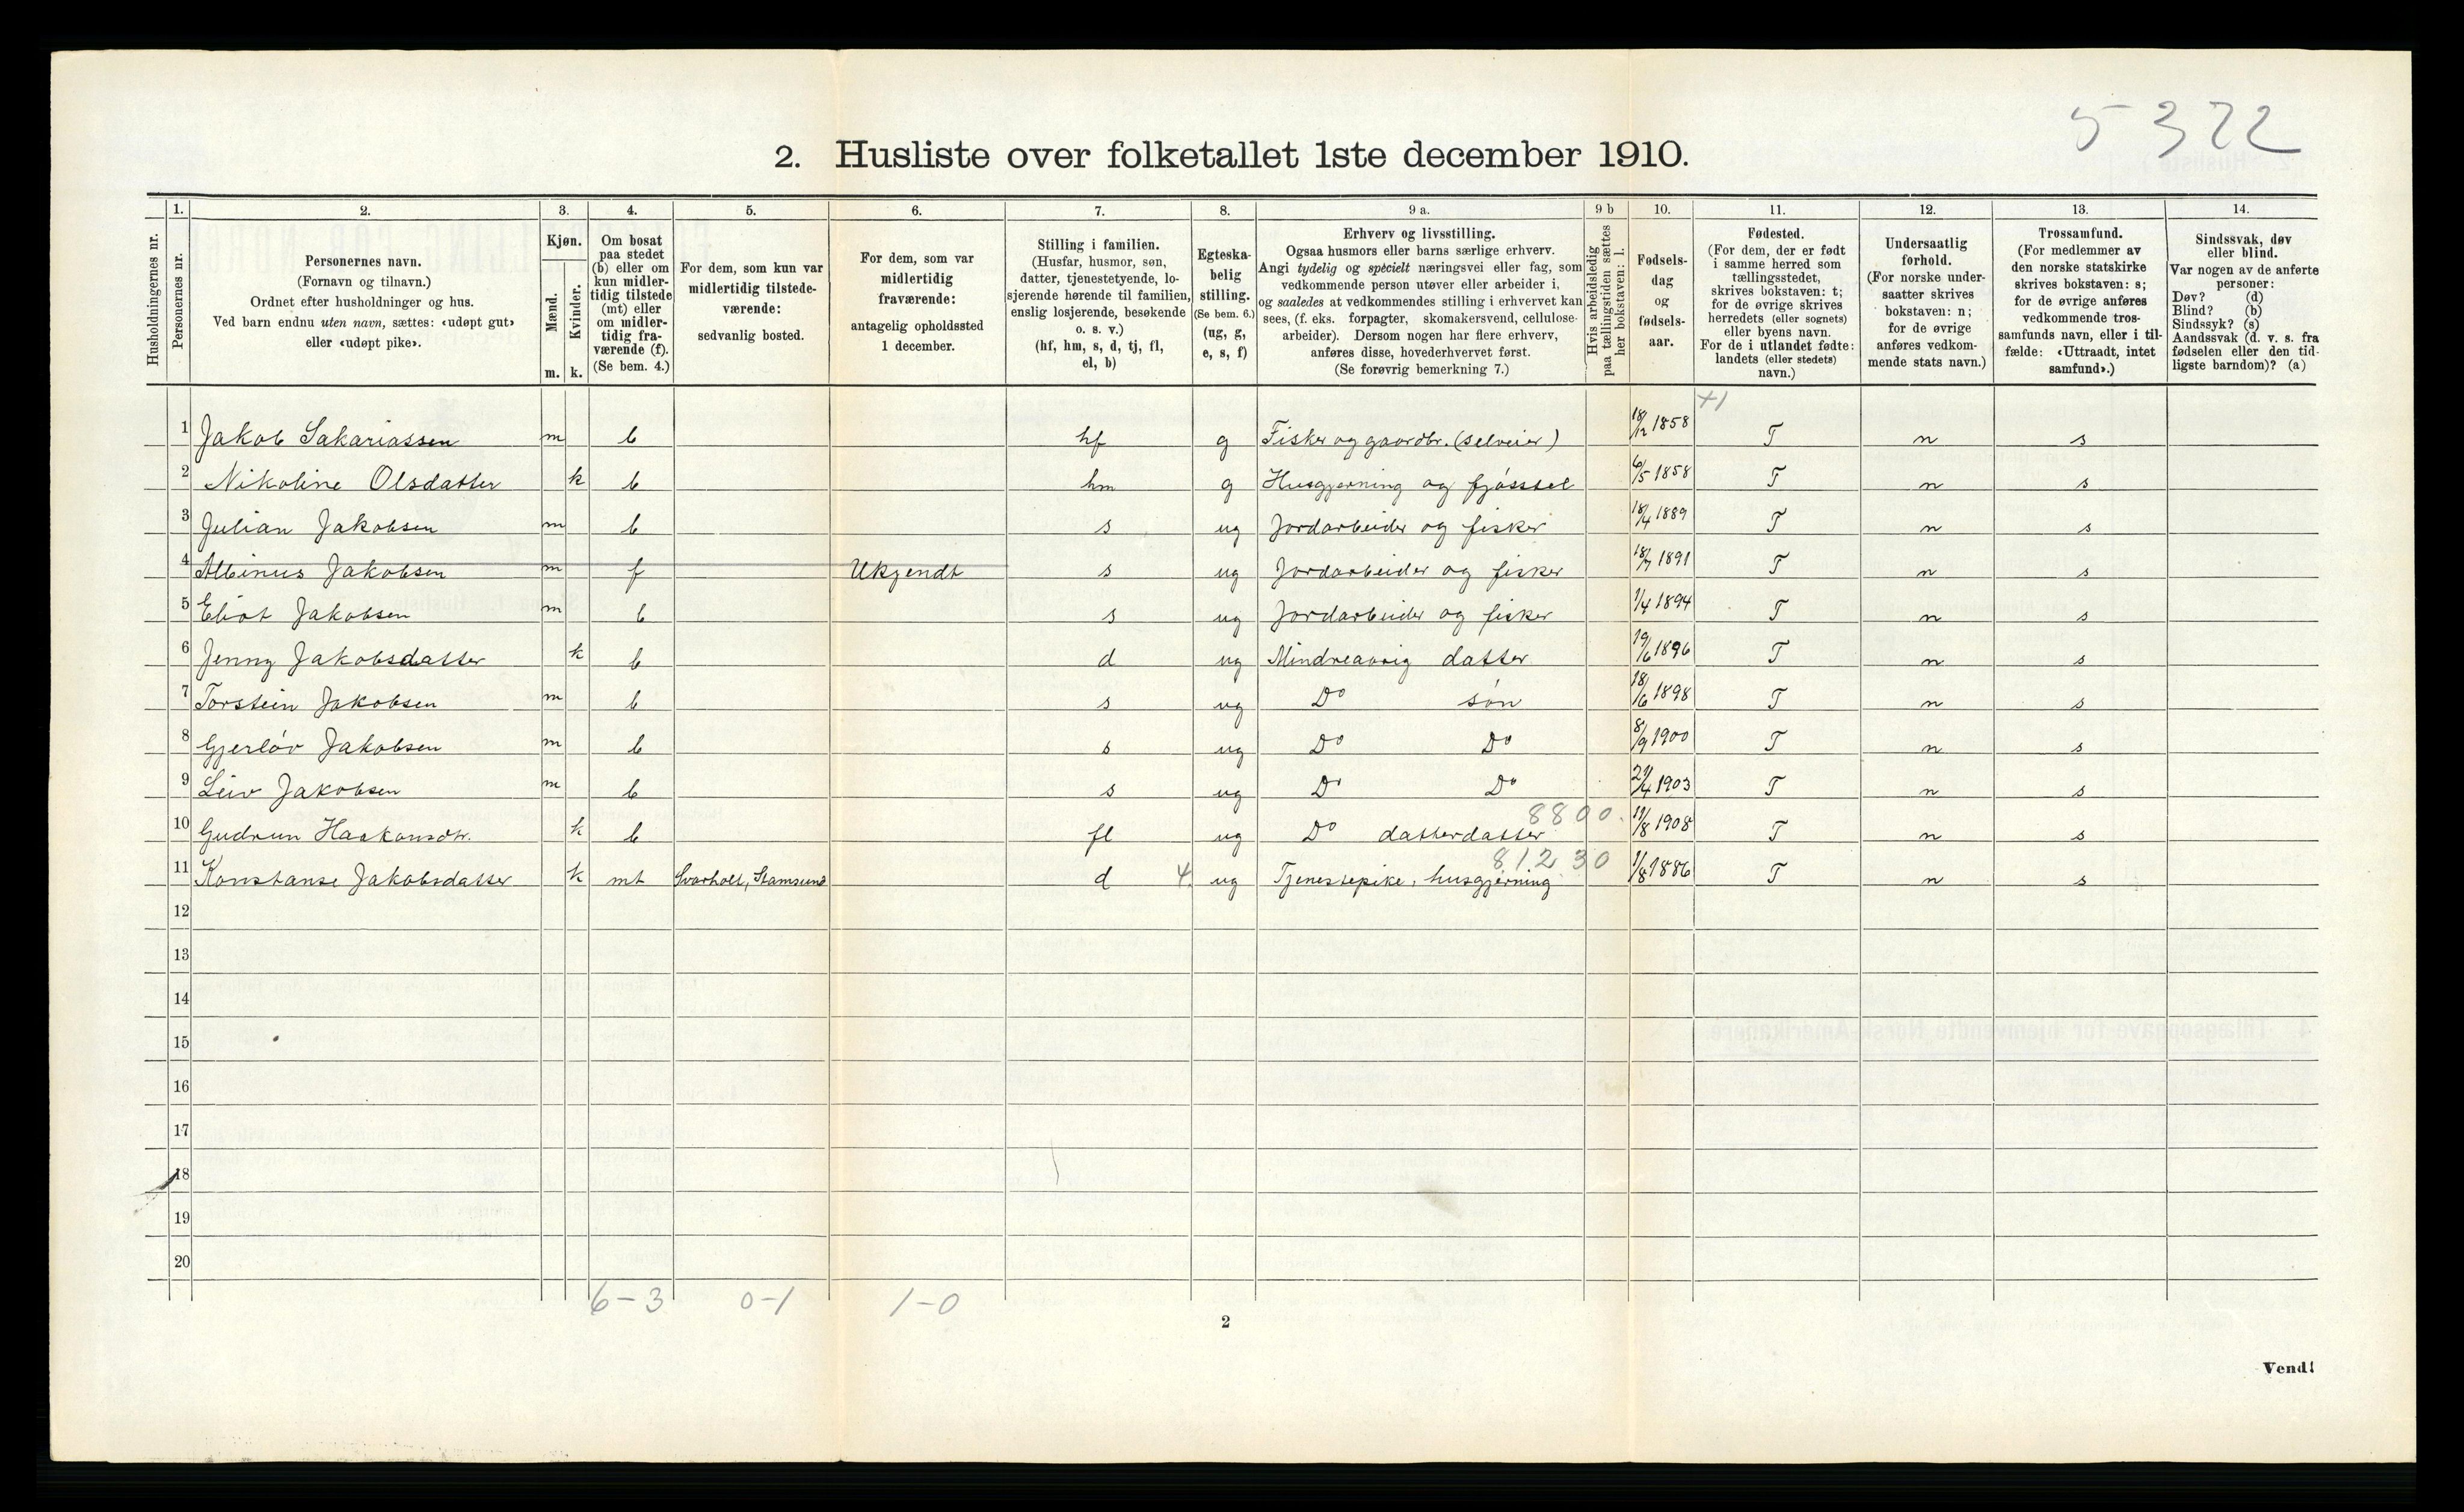 5 322
2. Husliste over folketallet 1ste december 1910.
Husholdningernes nr.
1. Personernes nr.
2. Personernes navn.
(Fornavn og tilnavn.)
Ordnet efter husholdninger og hus.
Ved barn endnu uten navn, sættes: «udøpt gut»
eller «udøpt pike».
3. Kjøn.
Mænd. Kvinder.
m. k.
4. Om bosat
paa stedet
(b) eller om
kun midler-
tidig tilstede
(mt) eller
om midler-
tidig fra-
værende (f).
(Se bem. 4.)
5. For dem, som kun var
midlertidig tilstede-
værende:
sedvanlig bosted.
6. For dem, som var
midlertidig
fraværende:
antagelig opholdssted
1 december.
7. Stilling i familien.
(Husfar, husmor, søn,
datter, tjenestetyende, lo-
sjerende hørende til familien,
enslig losjerende, besøkende
o. s. v.)
(hf, hm, s, d, tj, fl,
el, b)
8. Egteska-
belig
stilling.
(Se bem. 6.)
(ug, g,
e, s, f)
9 a. Erhverv og livsstilling.
Ogsaa husmors eller barns særlige erhverv.
Angi tydelig og specielt næringsvei eller fag, som
vedkommende person utøver eller arbeider i,
og saaledes at vedkommendes stilling i erhvervet kan
sees, (f. eks. forpagter, skomakersvend, cellulose-
arbeider). Dersom nogen har flere erhverv,
anføres disse, hovederhvervet først.
(Se forøvrig bemerkning 7.)
9 b Hvis arbeidsledig
paa tællingstiden sættes
her bokstaven: l.
10. Fødsels-
dag
og
fødsels-
aar.
11. Fødested.
(For dem, der er født
i samme herred som
tællingsstedet,
skrives bokstaven: t;
for de øvrige skrives
herredets (eller sognets)
eller byens navn.
For de i utlandet fødte:
landets (eller stedets)
navn.)
12. Undersaatlig
forhold.
(For norske under-
saatter skrives
bokstaven: n;
for de øvrige
anføres vedkom-
mende stats navn.)
13. Trossamfund.
(For medlemmer av
den norske statskirke
skrives bokstaven: s;
for de øvrige anføres
vedkommende tros-
samfunds navn, eller i til-
fælde: «Uttraadt, intet
samfund».)
14. Sindssvak, døv
eller blind.
Var nogen av de anførte
personer:
Døv? (d)
Blind? (b)
Sindssyk? (s)
Aandssvak (d. v. s. fra
fødselen eller den tid-
ligste barndom)? (a)
+1
1 Jakob Sakariassen m b hf g Fisker og gaardbr. (selveier) 18/12 1858 T n s
2 Nikoline Olsdatter k b hm g Husgjerning og fjøsstel 6/5 1858 T n s
3 Julian Jakobsen m b s ug Jordarbeider og fisker 18/4 1889 T n s
4 Albinus Jakobsen m f Ukjendt s ug Jordarbeider og fisker 18/7 1891 T n s
5 Eliot Jakobsen m b s ug Jordarbeider og fisker 1/4 1894 T n s
6 Jenny Jakobsdatter k b d ug Mindreaarig datter 19/6 1896 T n s
7 Torstein Jakobsen m b s ug Do søn 18/6 1898 T n s
8 Gjerløv Jakobsen m b s ug Do Do 8/9 1900 T n s
9 Leiv Jakobsen m b s ug Do Do 21/4 1903 T n s
8800.
10 Gudrun Haakonsdtr. k b fl ug Do datterdatter 11/8 1908 T n s
81230
11 Konstanse Jakobsdatter k mt Svarholt, Stamsund d 4. ug Tjenestepike, husgjerning 1/8 1886 T n s
12
13
14
15
16
17
18
19
20
6-3 0-1 1-0
2
Vend!